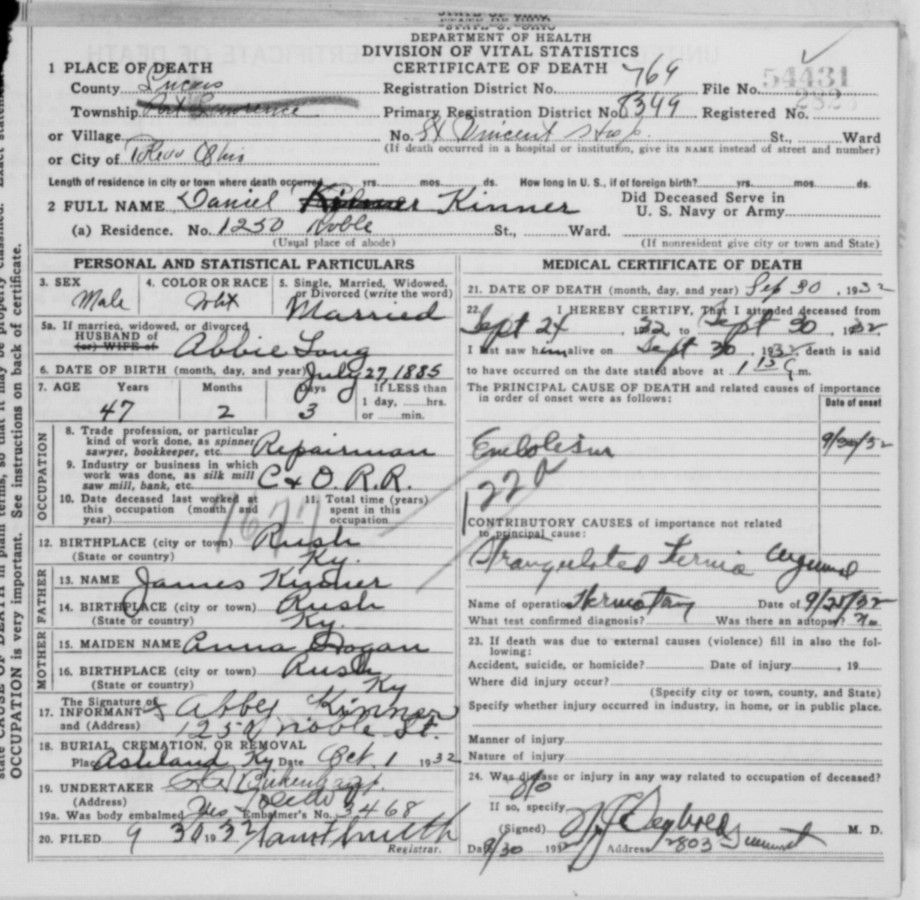 STATE OF OHIO
DEPARTMENT OF HEALTH
DIVISION OF VITAL STATISTICS
CERTIFICATE OF DEATH
1 PLACE OF DEATH
County Lucas Registration District No. 769 File No. 54431
Township Primary Registration District No. 8349 Registered No.
or Village No. St Vincent Hosp. St., Ward
(If death occurred in a hospital or institution, give its NAME instead of street and number)
or City of Toledo Ohio
Length of residence in city or town where death occurred yrs. mos. ds. How long in U. S., if of foreign birth? yrs. mos. ds.
2 FULL NAME Daniel Kinner Did Deceased Serve in U. S. Navy or Army
(a) Residence. No. 1250 Noble St., Ward.
(Usual place of abode) (If nonresident give city or town and State)
PERSONAL AND STATISTICAL PARTICULARS
3. SEX Male
4. COLOR OR RACE
5. Single, Married, Widowed, or Divorced (write the word) Married
5a. If married, widowed, or divorced
HUSBAND of
(or) WIFE of Abbie Long
6. DATE OF BIRTH (month, day, and year) July 27, 1885
7. AGE Years Months Days If LESS than
1 day, hrs.
or min.
47 2 3
OCCUPATION
8. Trade profession, or particular
kind of work done, as spinner
sawyer, bookkeeper, etc. Repairman
9. Industry or business in which
work was done, as silk mill
saw mill, bank, etc. C & O. R.R.
10. Date deceased last worked at
this occupation (month and
year)
11. Total time (years)
spent in this
occupation
1677
12. BIRTHPLACE (city or town) Rush
(State or country) Ky.
FATHER
13. NAME James Kinner
14. BIRTHPLACE (city or town) Rush
(State or country) Ky.
MOTHER
15. MAIDEN NAME Anna Hogan
16. BIRTHPLACE (city or town) Rush
(State or country) Ky
17. The Signature of
INFORMANT Abbey Kinner
and (Address) 1250 Noble St.
18. BURIAL, CREMATION, OR REMOVAL
Place Ashland Ky Date Oct. 1 1932
19. UNDERTAKER
(Address) Toledo O.
19a. Was body embalmed Yes Embalmer's No. 3468
20. FILED 9 30 1932
Registrar.
MEDICAL CERTIFICATE OF DEATH
21. DATE OF DEATH (month, day, and year) Sep 30, 1932
22. I HEREBY CERTIFY, That I attended deceased from
Sept 24, 1932 to Sept 30, 1932
I last saw him alive on Sept 30, 1932, death is said
to have occurred on the date stated above at m.
The PRINCIPAL CAUSE OF DEATH and related causes of importance
in order of onset were as follows:
Date of onset
Embolism 9/30/32
CONTRIBUTORY CAUSES of importance not related
to principal cause:
Strangulated Hernia
Name of operation Date of 9/25/32
What test confirmed diagnosis? Was there an autopsy? No
23. If death was due to external causes (violence) fill in also the fol-
lowing:
Accident, suicide, or homicide? Date of injury , 19
Where did injury occur?
(Specify city or town, county, and State)
Specify whether injury occurred in industry, in home, or in public place.
Manner of injury
Nature of injury
24. Was disease or injury in any way related to occupation of deceased?
No
If so, specify
(Signed) M. D.
Date 9/30 1932 Address 2803 Summit
OCCUPATION is very important. See instructions on back of certificate.